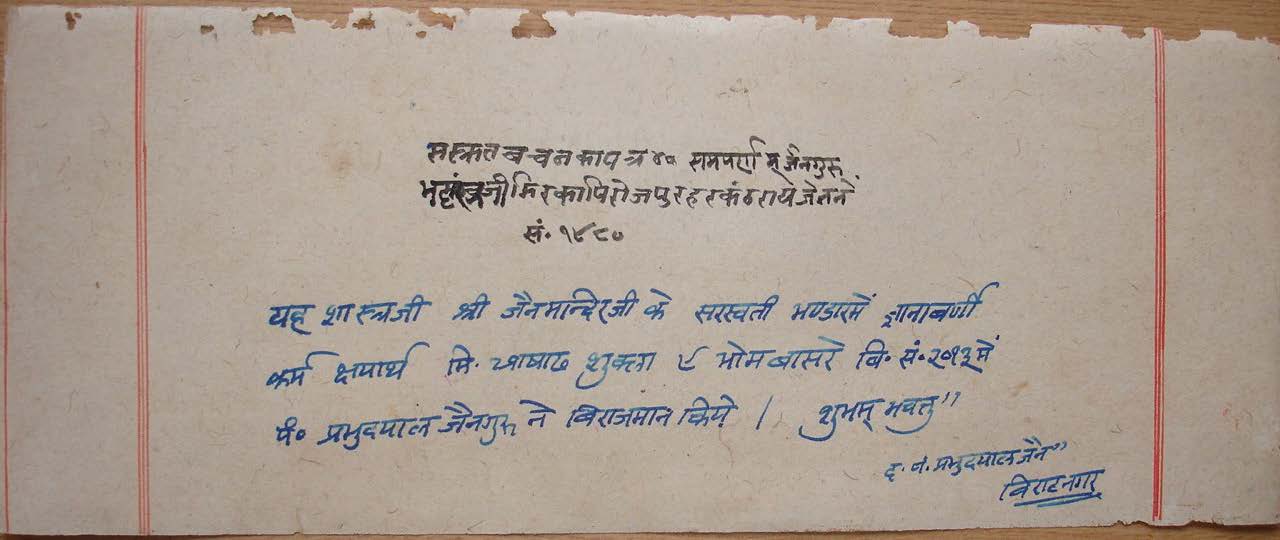 सस्क्रतबचनकापत्र ४० समपर्ण म् जैनगुरू
जी मिरकापिरोजपुरहरकंठरायेजेतने
सं॰ १९८०
यह शास्त्रजी श्री जैनमान्दिरजी के सरस्वती भण्डारमें ज्ञानाबर्णी
कर्म क्षयार्थ मि॰ आषाढ शुक्ला ९ भोमबासरे बि॰ सं॰ २०१३ में
पं॰ प्रभुदयाल जैनगुरू ने बिराजमान किये । शुभम् भवतु"
द॰ पं॰ प्रभुदयाल जैन"
बिराटनगर